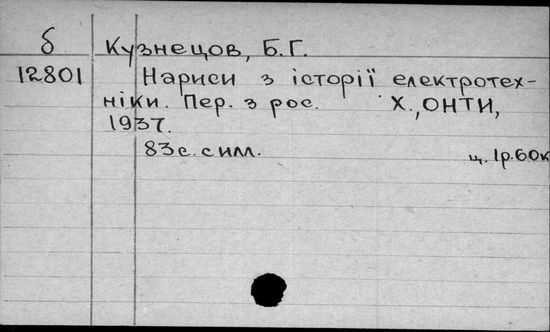 б Кузнецов, Б.Г.
12801 Нариси з історії електротех-
ніки. Пер. з рос. Х., ОНТИ,
1937.
83с. с илл. ц. 1р.60к